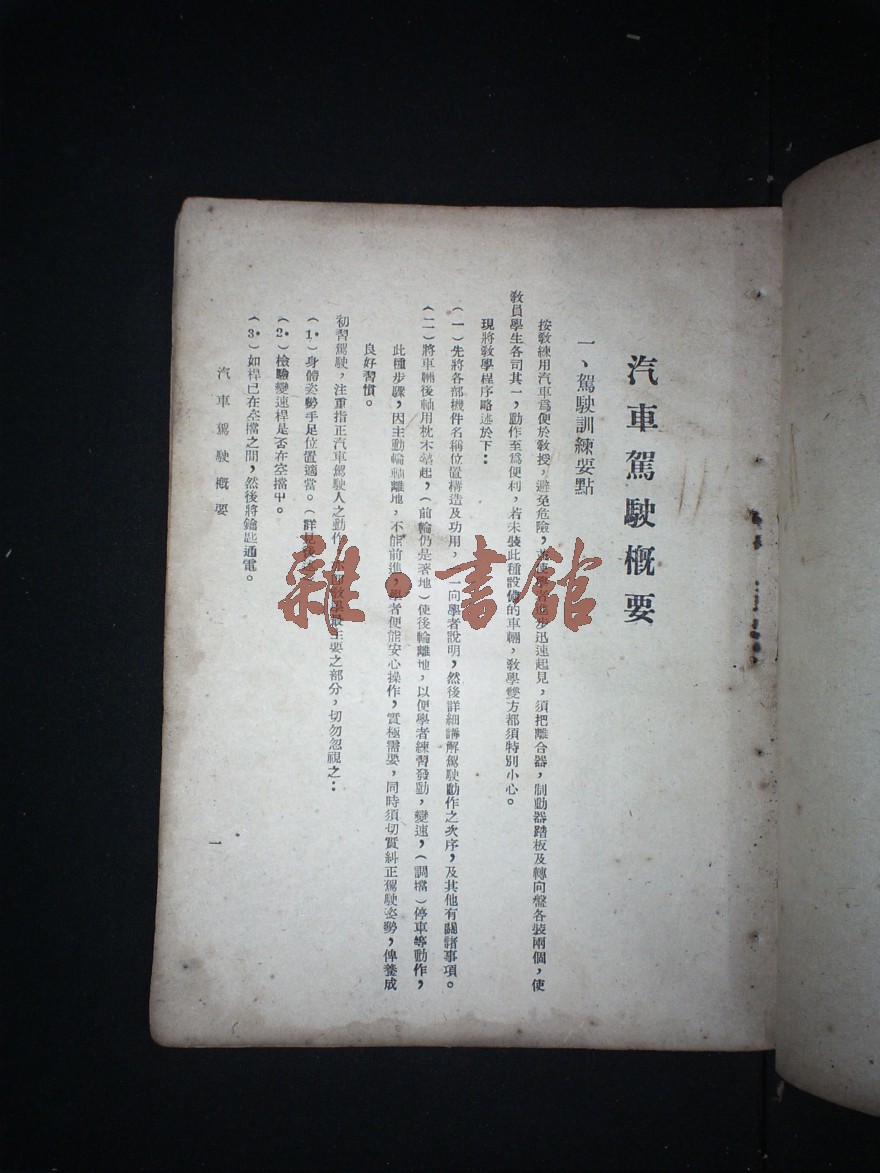 汽車駕駛概要
一、駕駛訓練要點
按教練用汽車爲便於教授，避免危險，步迅速起見，須把離合器，制動器踏板及轉向盤各裝兩個，使
教員學生各司其一，動作至爲便利，若未裝此種設備的車輛，教學雙方都須特別小心。
現將教學程序略述於下：
（一）先將各部機件名稱位置構造及功用，一向學者說明，然後詳細講解駕駛動作之次序，及其他有關諸事項。
（二）將車輛後軸用枕木起，（前輪仍是著地）使後輪離地，以便學者練習發動，變速，（調檔）停車等動作，
此種步驟，因主動輪軸離地，不能前進，學者便能安心操作，實極需要，同時須切實糾正駕駛姿勢，俾養成
良好習慣。
初習駕駛，注重指正汽車駕駛人之動作，主要之部分，切勿忽視之：
（1•）身體姿勢手足位置適當。（詳見
（2•）檢驗變速桿是否在空擋中。
（3•）如桿已在空擋之間，然後將鑰匙通電。
汽車駕駛概要
一
雜•書館